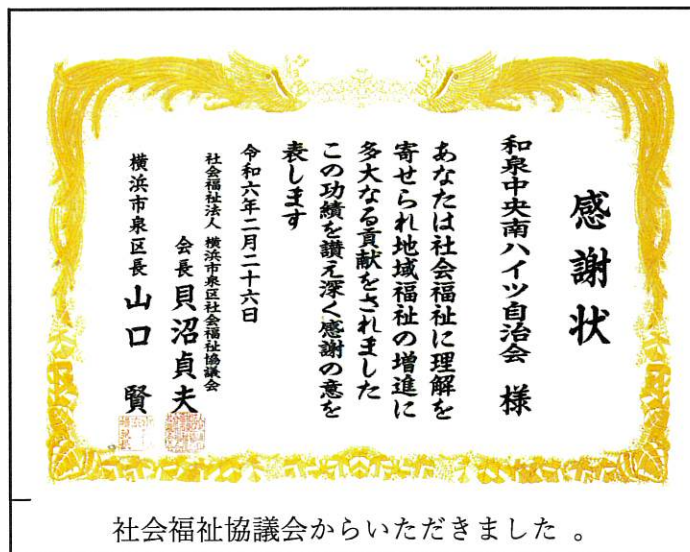 感謝状
和泉中央南ハイツ自治会 様
あなたは社会福祉に理解を
寄せられ地域福祉の増進に
多大なる貢献をされました
この功績を讃え深く感謝の意を
表します
令和六年二月二十六日
社会福祉法人 横浜市泉区社会福祉協議会
会長 貝沼貞夫
横浜市泉区長 山口 賢
社会福祉協議会からいただきました 。